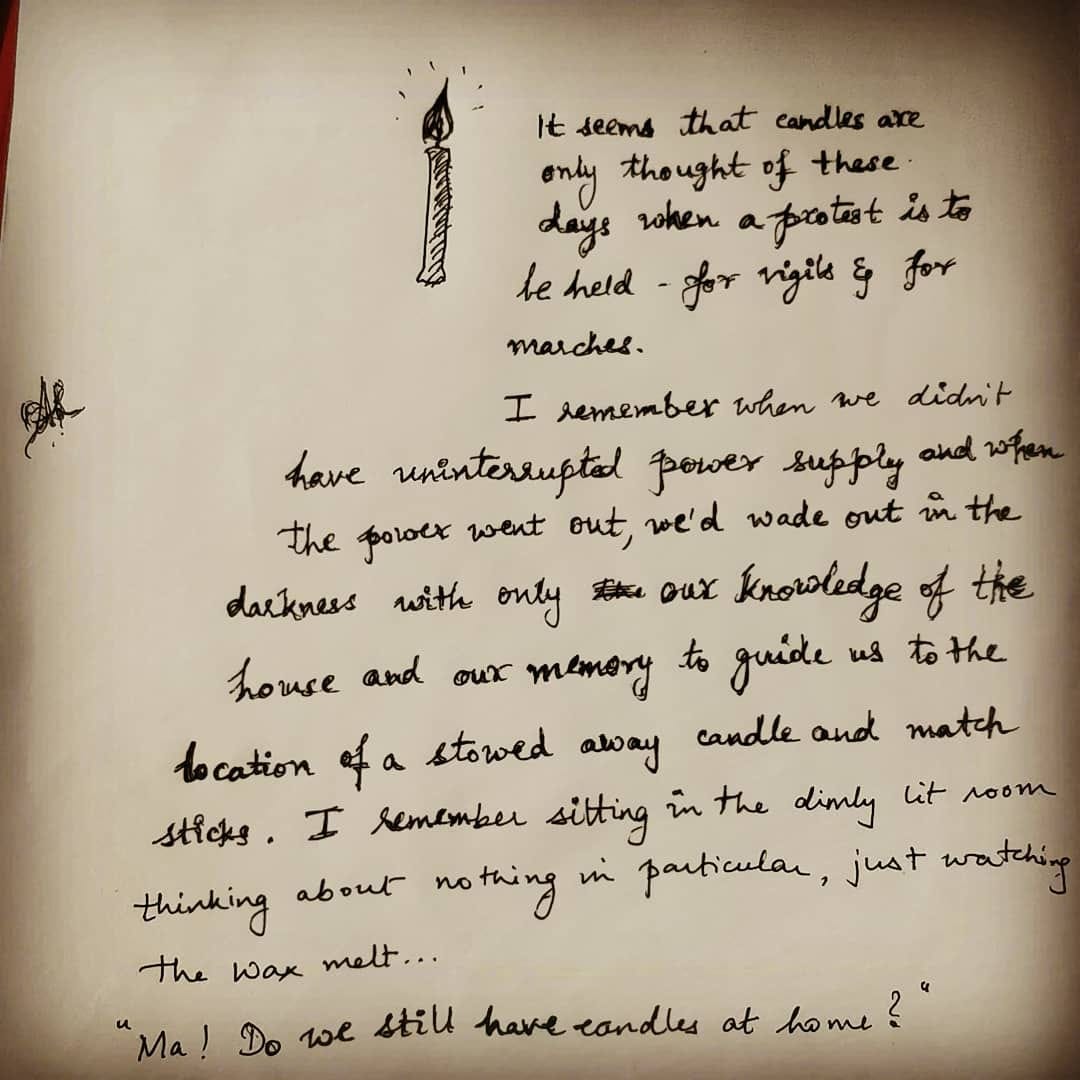 It seems that candles are
only thought of these
days when a protest is to
be held - for vigils & for
marches.
I remember when we didn't
have uninterrupted power supply and when
the power went out, we'd wade out in the
darkness with only our knowledge of the
house and our memory to guide us to the
location of a stowed away candle and match
sticks. I remember sitting in the dimly lit room
thinking about nothing in particular, just watching
the wax melt...
"Ma! Do we still have candles at home?"